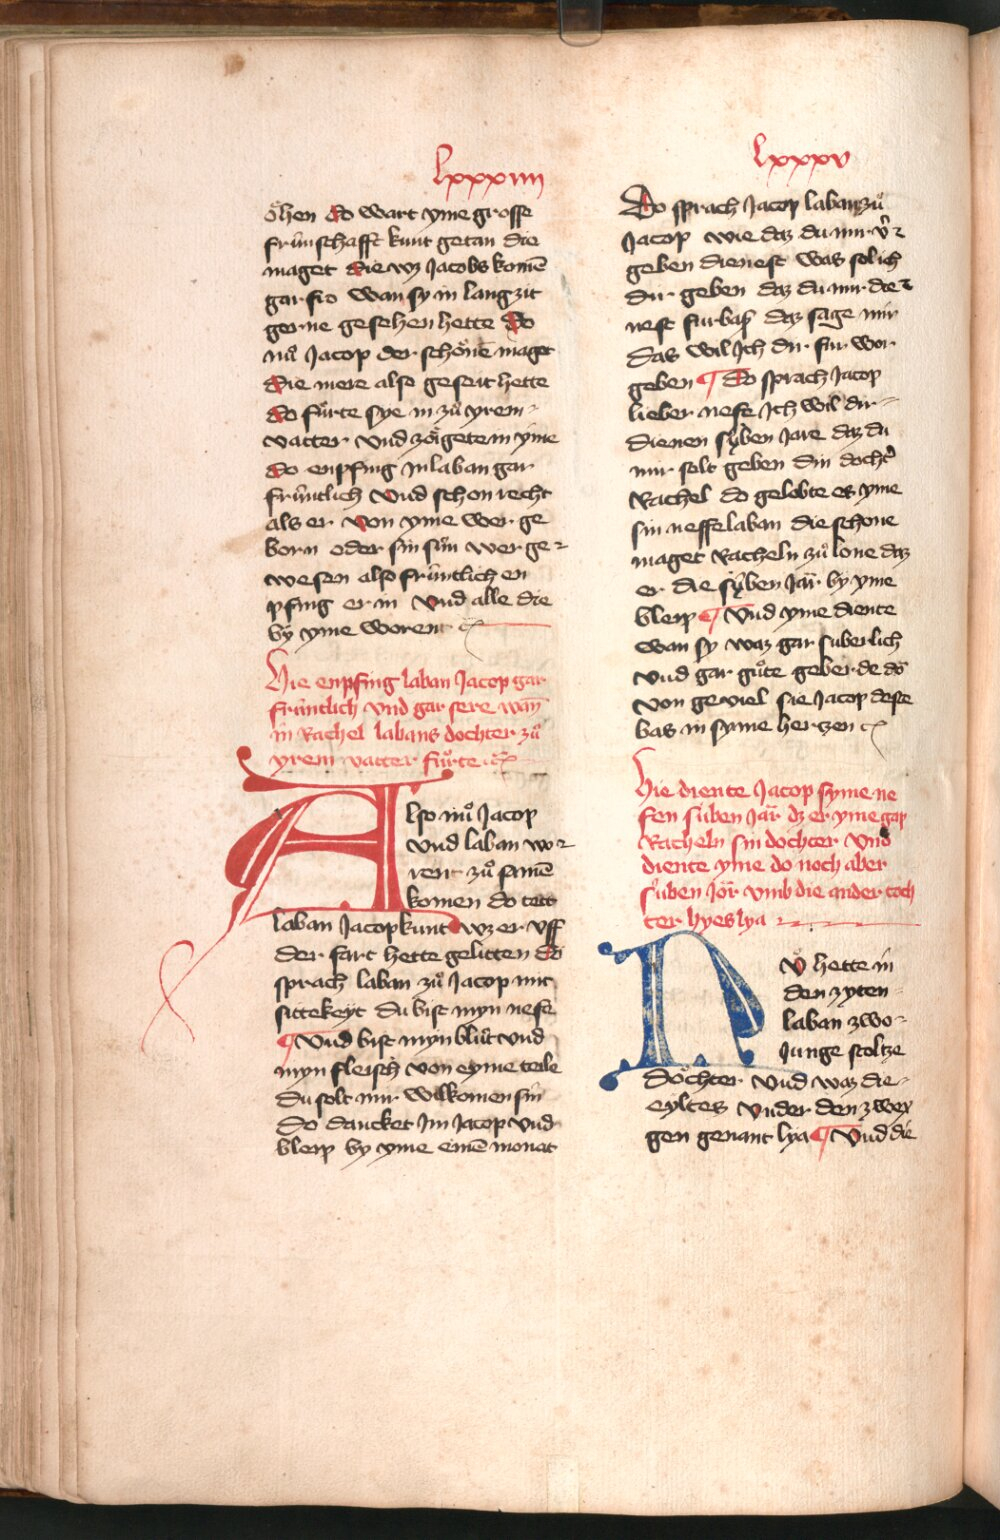 lxxxiiii
öhen do wart yme grosse
früntschafft kunt getan die
maget die wz Jacobs komē
gar fro wan sy in lang zit
gerne gesehen hette do
nuͦ Jacop der schönē maget
die mere also geseit hette
do fuͤrte sye in zuͦ yrem
vatter vnd zöigete in yme
do enpfing in laban gar
früntlich vnd schon recht
als er von yme wer ge
born oder sin sün wer ge
wesen also früntlich en
pfing er in vnd alle die
by yme worent
Hie enpfing laban Jacop gar
früntlich vnd gar sere wan̄
in Rachel labans dochter zuͦ
yrem vatter fuͤrte
Also nuͦ Jacop
vnd laban wo
rent zuͦ samē
komen do tett
laban Jacop kunt wz er vff
der fart hette gelitten do
sprach laban zuͦ Jacop mit
sittekeyt du bist myn nefe
¶ Vnd bist myn bluͦt vnd
myn fleisch von eyme teile
du solt mir wilkomen sin
do dancket Im Jacop vnd
bleip by yme einē monat
lxxxv
Do sprach Jacop laban zuͦ
Jacop wie daz du mir v̾
geben dienest was sol ich
dir geben daz du mir die
nest furbaß daz sage mir
das wil Ich dir fur wor
geben ¶ do sprach Jacop
lieber nefe Ich wil dir
dienen syben Jare daz du
mir solt geben din docht̾
Rachel do gelobte er yme
sin neffe laban die schone
maget Racheln zuͦ lone daz
er die syben Jar by yme
bleip ¶ Vnd yme diente
wan sy waz gar suberlich
vnd gar guͦte geberde do
von geviel sie Jacop deste
bas in syme hertzen
Hie diente Jacop syme ne
fen siiben Jar dz er yme gap
Racheln sin dochter vnd
diente yme do noch aber
siiben Jor vmb die ander toch
ter hyes lya
Nuͦ hette in
den zyten
laban zwo
Junge stoltze
döchter vnd waz die
eyltes vnder den zwey
gen genant lya ¶ Vnd die